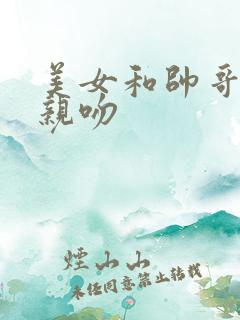 美女和帥哥
親吻
煙山山
未經同意禁止轉載